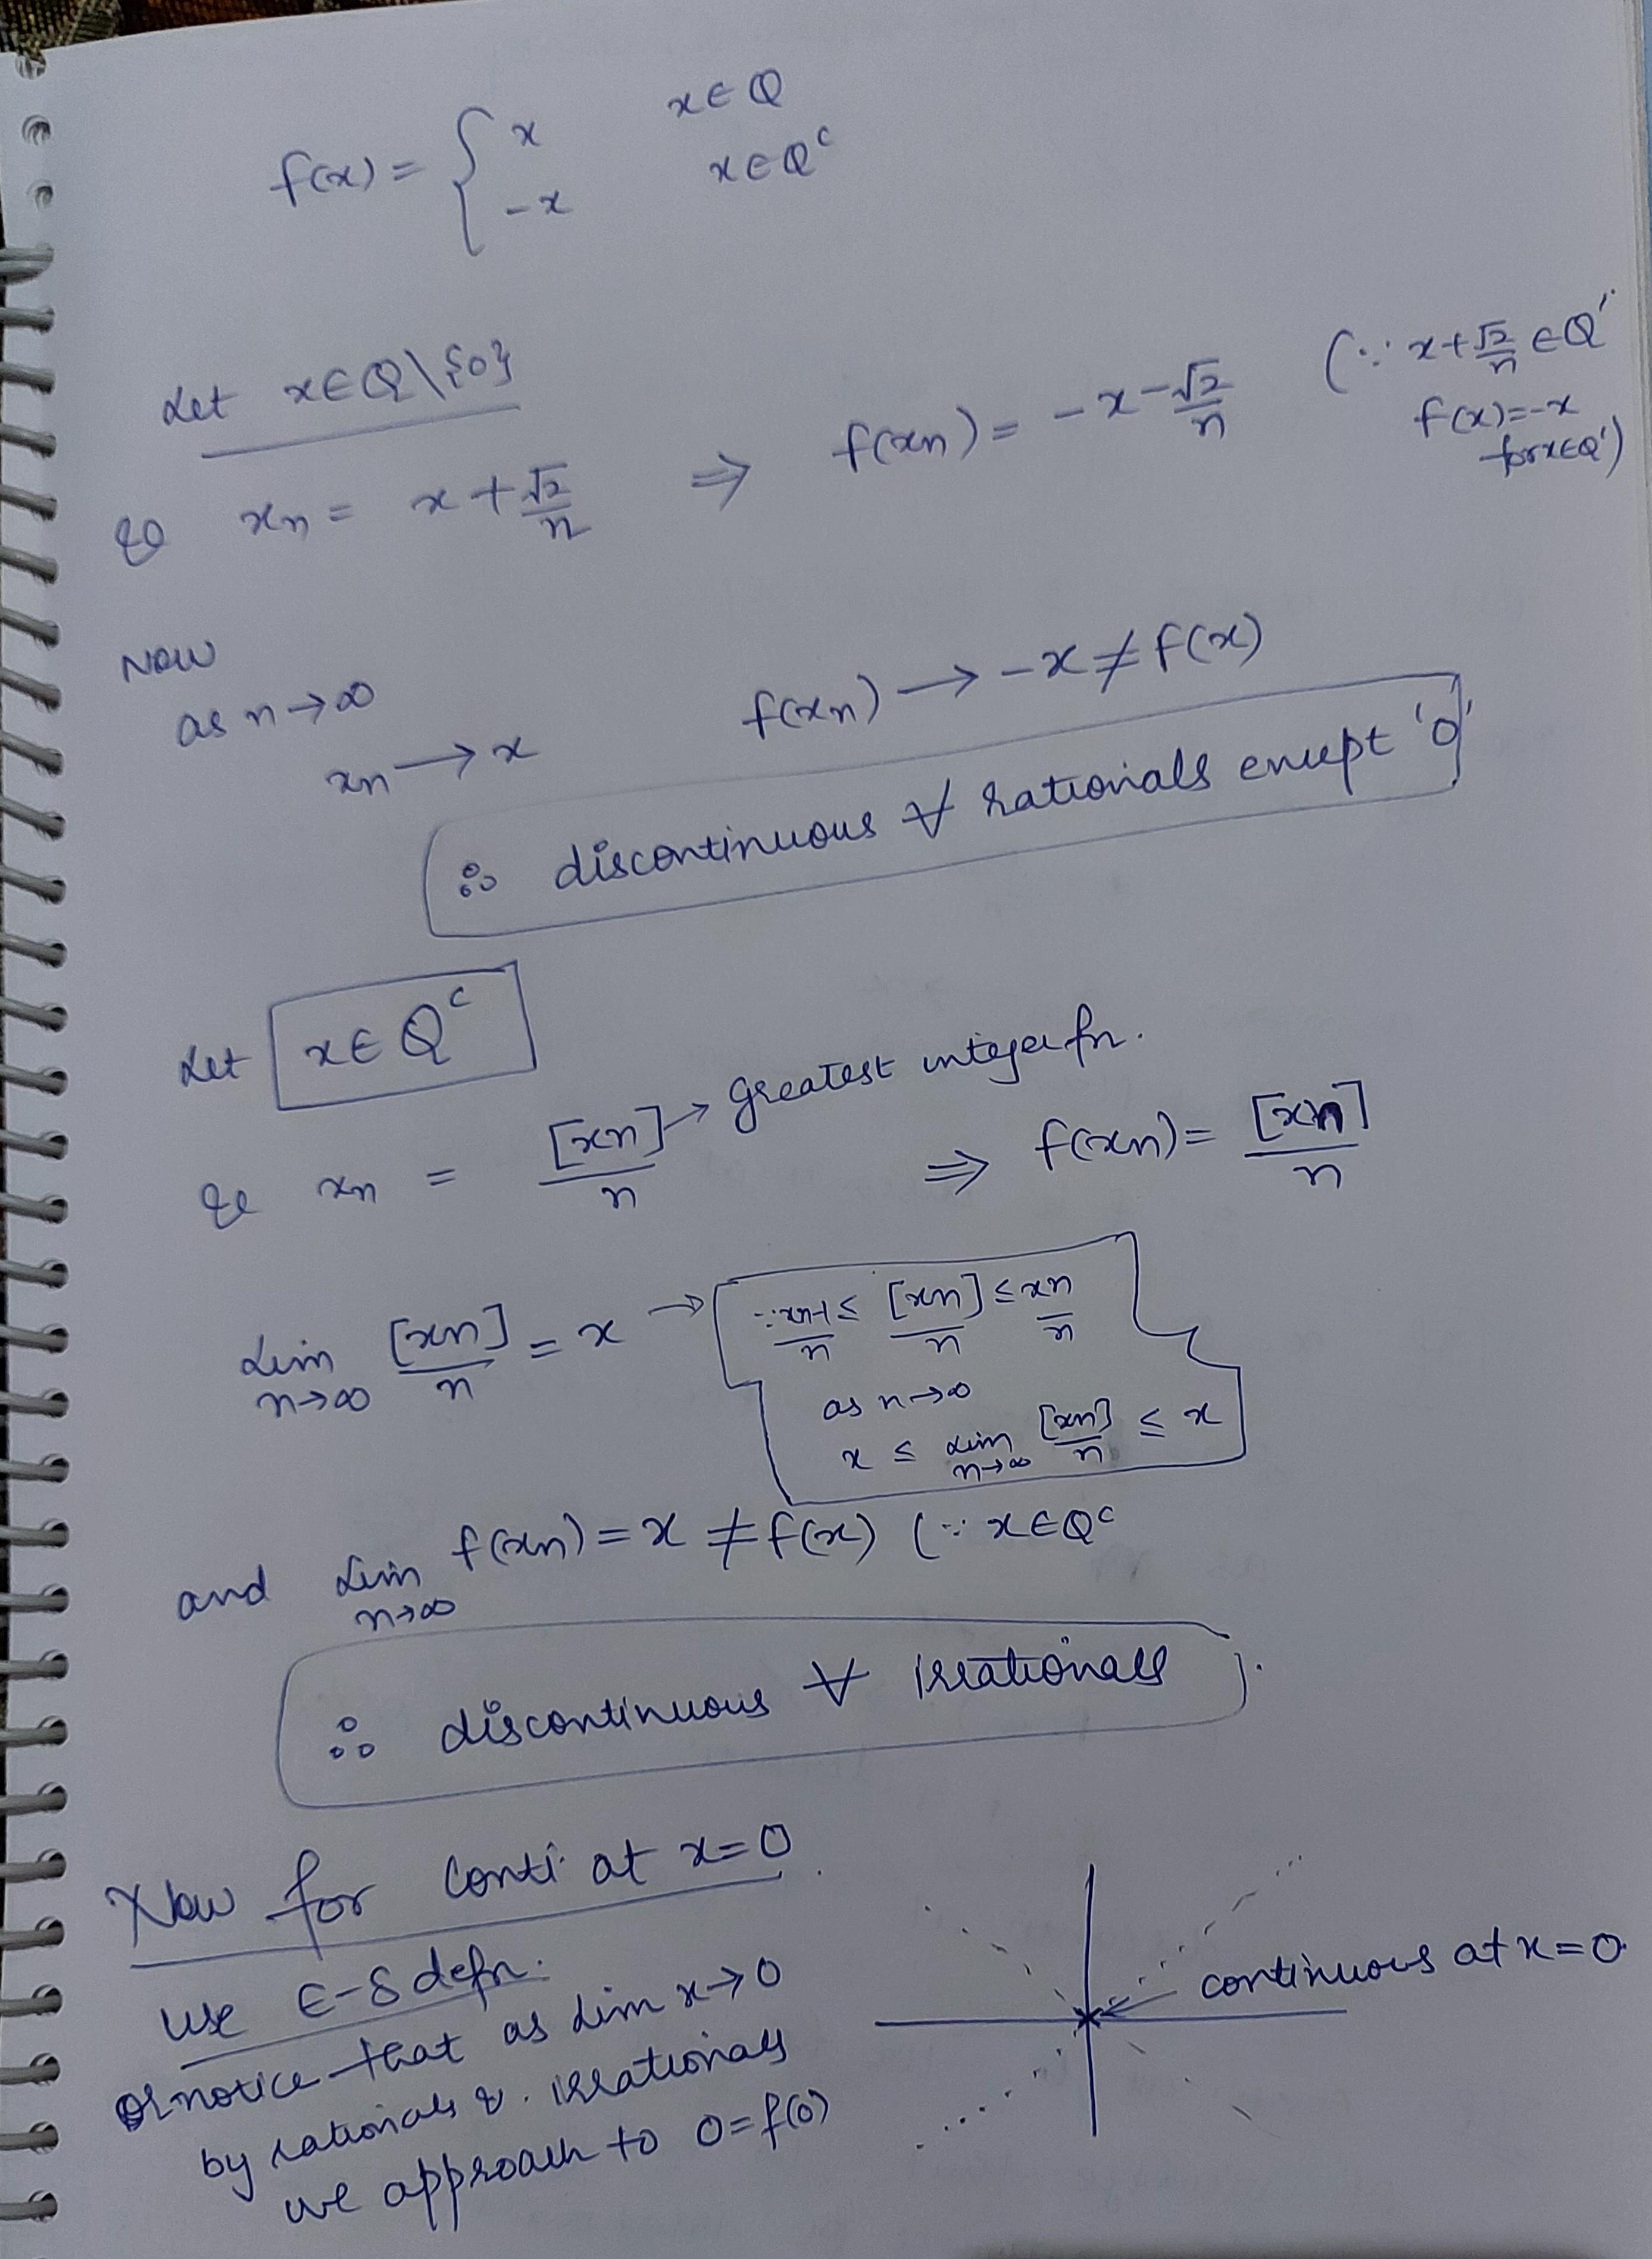 f(x) = { x x∈Q
-x x∈Qᶜ
Let x∈Q\{0}
& xn = x + √2/n ⇒ f(xn) = -x - √2/n (∵ x + √2/n ∈ Q'
f(x) = -x
for x∈Q')
Now
as n→∞
xn → x f(xn) → -x ≠ f(x)
∴ discontinuous ∀ rationals except '0'
Let x∈Qᶜ
& xn = [xn]/n → greatest integer fn. ⇒ f(xn) = [xn]/n
Lim n→∞ [xn]/n = x → ∵ xn-1/n ≤ [xn]/n ≤ xn/n
as n→∞
x ≤ Lim n→∞ [xn]/n ≤ x
and Lim n→∞ f(xn) = x ≠ f(x) (∵ x∈Qᶜ
∴ discontinuous ∀ irrationals.
Now for conti. at x=0.
use ε-δ defn.
or notice that as Lim x→0
by rationals & irrationals
we approach to 0 = f(0)
continuous at x=0.